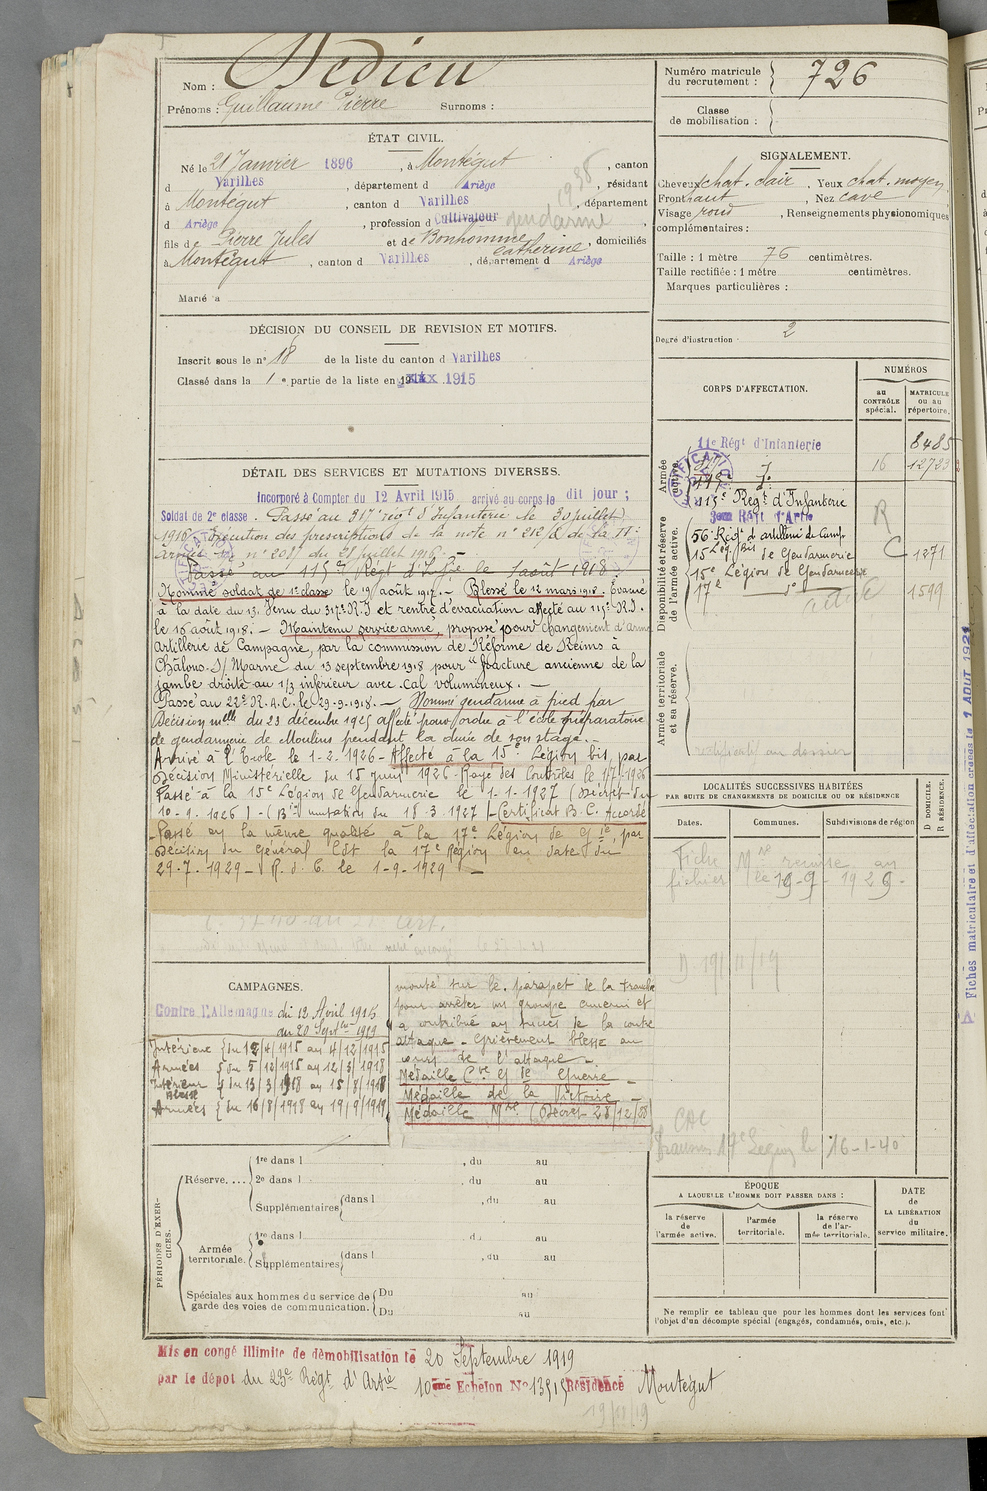 Nom : Dedieu
Prénoms : Guillaume Pierre Surnoms :
ÉTAT CIVIL.
Né le 21 Janvier 1896, à Montégut, canton
d Varilhes, département d Ariège, résidant
à Montégut, canton d Varilhes, département
d Ariège, profession d cultivateur gendarme
fils de Pierre Jules et de Bonhomme Catherine, domiciliés
à Montégut, canton d Varilhes, département d Ariège
Marié à
DÉCISION DU CONSEIL DE REVISION ET MOTIFS.
Inscrit sous le n° 18 de la liste du canton d Varilhes
Classé dans la 1e partie de la liste en 1915
DÉTAIL DES SERVICES ET MUTATIONS DIVERSES.
Incorporé à Compter du 12 Avril 1915 arrivé au corps le dit jour ;
Soldat de 2e classe. Passé au 317e régt d'Infanterie le 30 juillet
1916 Exécution des prescriptions de la note n° 212/Q de la 11e
Armée n° 208/ du 25 juillet 1916. -
Passé au 115e Régt d'Infie le 1 août 1918.
Nommé soldat de 1e classe le 19 août 1917. - Blessé le 12 mars 1918. Évacué
à la date du 13. Venu du 317e R.I et rentré d'évacuation affecté au 115e R.I.
le 16 août 1918. - Maintenu service armé, proposé pour changement d'arme
artillerie de Campagne, par la commission de Réforme de Reims à
Châlons S/ Marne du 13 septembre 1918 pour "fracture ancienne de la
jambe droite au 1/3 inférieur avec cal volumineux. -
Passé au 22e R.A.C. le 29-9-1918. - Nommé gendarme à pied par
Décision Melle du 23 décembre 1925 affecté pour ordre à l'école préparatoire
de gendarmerie de Moulins pendant la durée de son stage.
Arrivé à l'École le 1-2-1926 - Affecté à la 15e Légion bis, par
Décision Ministérielle du 15 juin 1926 - Rayé des Contrôles le 17-1926
Passé à la 15e Légion de Gendarmerie le 1-1-1927 (Décret du
10-9-1926) - (Bin mutation du 18-3-1927) - Certificat B.C. Accordé
Passé en la même qualité à la 17e Légion de Gie, par
Décision du Général Cdt la 17e Région en date du
29-7-1929 - R. d. C. le 1-9-1929 -
CAMPAGNES.
Contre l'Allemagne du 12 Avril 1915
au 20 Septbre 1919
Intérieur du 12/4/1915 au 4/12/1915
Armées du 5/12/1915 au 12/3/1918
Intérieur Blessé du 13/3/1918 au 15/8/1918
Armées du 16/8/1918 au 19/9/1919
monté sur le parapet de la tranchée
pour arrêter un groupe ennemi et
a contribué au succès de la contre
attaque - Grièvement blessé au
cours de l'attaque -
Médaille Cve Gde Guerre -
Médaille de la Victoire -
Médaille Mre (Décret 28/12/38)
PÉRIODES D'EXERCICES.
Réserve.... 1re dans l , du au
2e dans l , du au
Supplémentaires dans l , du au
Armée territoriale. 1re dans l , du au
Supplémentaires dans l , du au
Spéciales aux hommes du service de garde des voies de communication. Du au
Du au
Mis en congé illimité de démobilisation le 20 Septembre 1919
par le dépôt du 23e Régt d'Artie 10ème Echelon N° 13515 Résidence Montégut
19/11/19
Numéro matricule du recrutement : 726
Classe de mobilisation :
SIGNALEMENT.
Cheveux chat. clair, Yeux chat. moyen
Front haut, Nez cave
Visage rond, Renseignements physionomiques
complémentaires :
Taille : 1 mètre 76 centimètres.
Taille rectifiée : 1 mètre centimètres.
Marques particulières :
Degré d'instruction 2
CORPS D'AFFECTATION.
NUMÉROS
au CONTRÔLE spécial.
MATRICULE ou au répertoire.
Armée active.
11e Régt d'Infanterie 8485
317e I. 16 12723
115e Régt d'Infanterie
Disponibilité et réserve de l'armée active.
56e Régt d'artillerie de Camp. R
15 Lég. bis de Gendarmerie C 1271
15e Légion de Gendarmerie
17e d° 1599
active
Armée territoriale et sa réserve.
rectificatif au dossier
LOCALITÉS SUCCESSIVES HABITÉES
PAR SUITE DE CHANGEMENTS DE DOMICILE OU DE RÉSIDENCE
Dates. Communes. Subdivisions de région
D DOMICILE. R RÉSIDENCE.
Fiche Mle remise au
fichier le 19-9-1929-
D 19/11/19
Transmis 17e Légion le 16-1-40
ÉPOQUE
A LAQUELLE L'HOMME DOIT PASSER DANS :
la réserve de l'armée active.
l'armée territoriale.
la réserve de l'armée territoriale.
DATE de LA LIBÉRATION du service militaire.
Ne remplir ce tableau que pour les hommes dont les services font
l'objet d'un décompte spécial (engagés, condamnés, omis, etc.).
Fiches matriculaire et d'affectation créées le 1 AOUT 1921